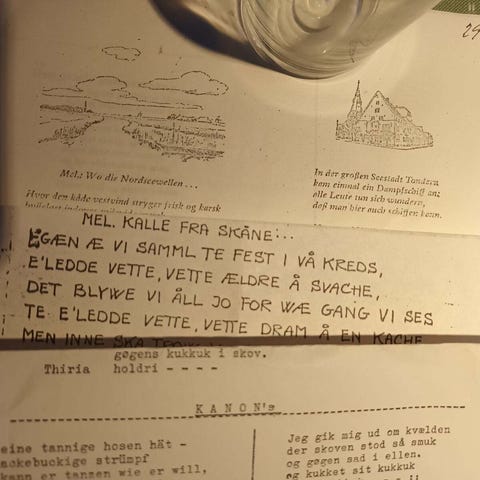 29
Mel.: Wo die Nordseewellen ...
Hvor den kåde vestvind stryger frisk og karsk
In der großen Seestadt Tondern
kam einmal ein Dampfschiff an;
alle Leute tun sich wundern,
daß man hier auch schiffen kann.
MEL. KALLE FRA SKÅNE:..
EGÆN Æ VI SAMML TE FEST I VÅ KREDS,
E'LEDDE VETTE, VETTE ÆLDRE Å SVACHE,
DET BLYWE VI ÅLL JO FOR WÆ GANG VI SES
TE E'LEDDE VETTE, VETTE DRAM Å EN KACHE
MEN INNE SKA
gøgens kukkuk i skov.
Thiria holdri - - - -
KANON's
eine tannige hosen hät -
ackebuckige strümpf
kann er tanzen wie er will,
Jeg gik mig ud om kvælden
der skoven stod så smuk
og gøgen sad i ellen.
og kukket sit kukkuk